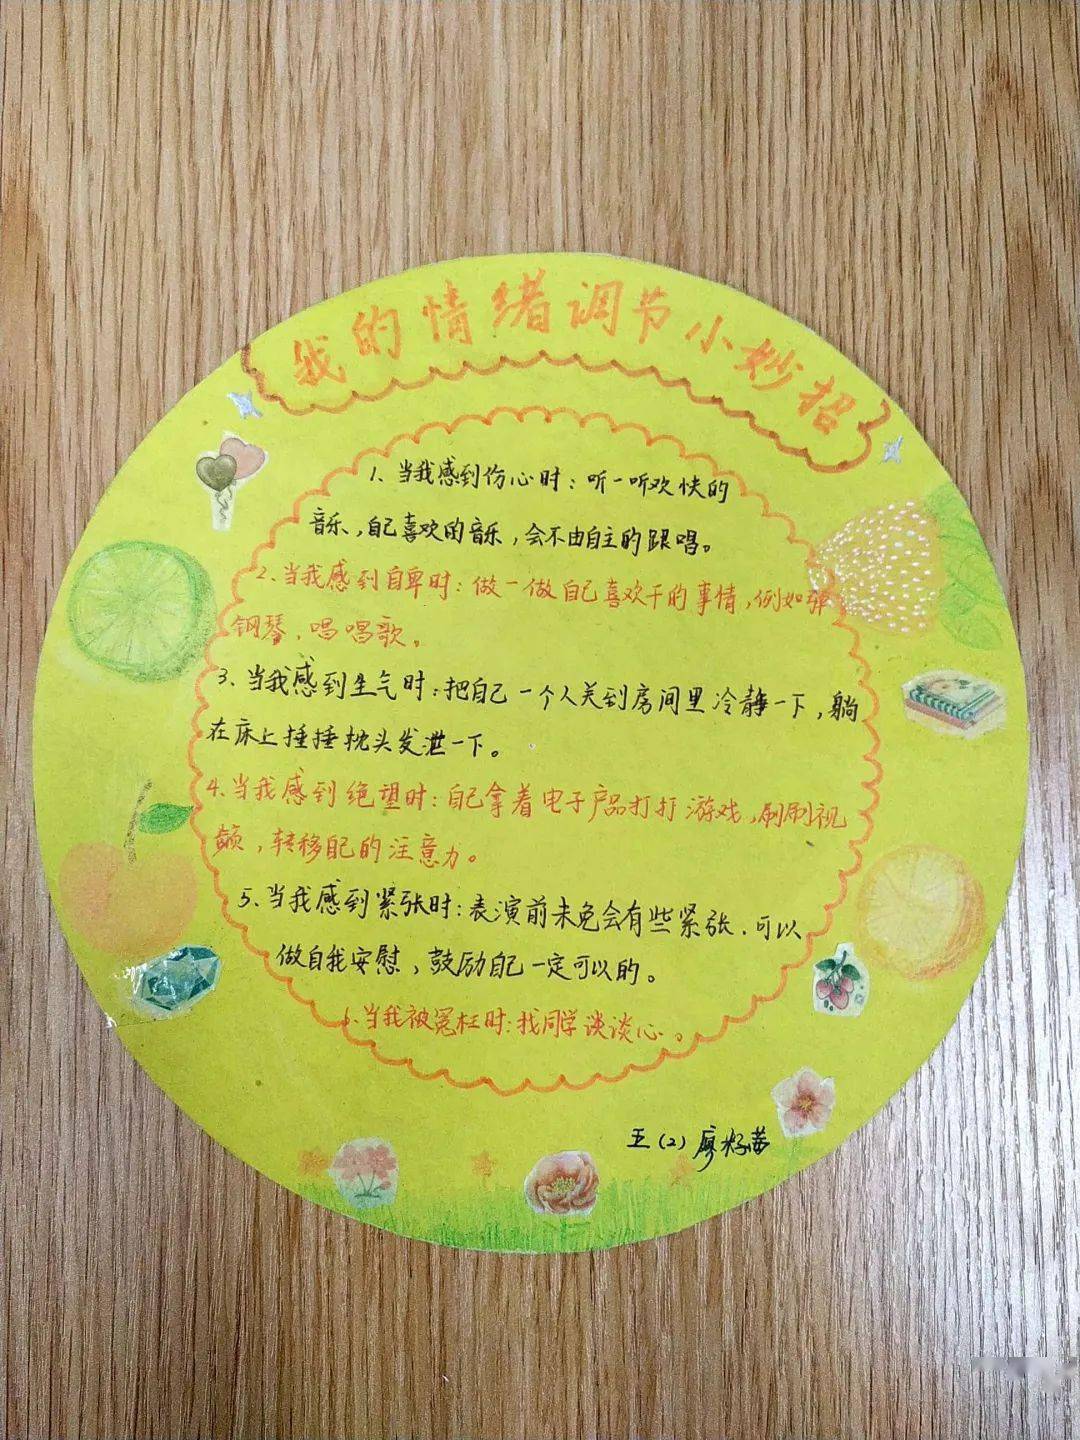 我的情绪调节小妙招
1、当我感到伤心时：听一听欢快的
音乐，自己喜欢的音乐，会不由自主的跟唱。
2、当我感到自卑时：做一做自己喜欢干的事情，例如弹
钢琴，唱唱歌。
3、当我感到生气时：把自己一个人关到房间里冷静一下，躺
在床上捶捶枕头发泄一下。
4、当我感到绝望时：自己拿着电子产品打打游戏，刷刷视
频，转移自己的注意力。
5、当我感到紧张时：表演前未免会有些紧张，可以
做自我安慰，鼓励自己一定可以的。
6、当我被冤枉时：找同学谈谈心。
五（2）廖籽茜